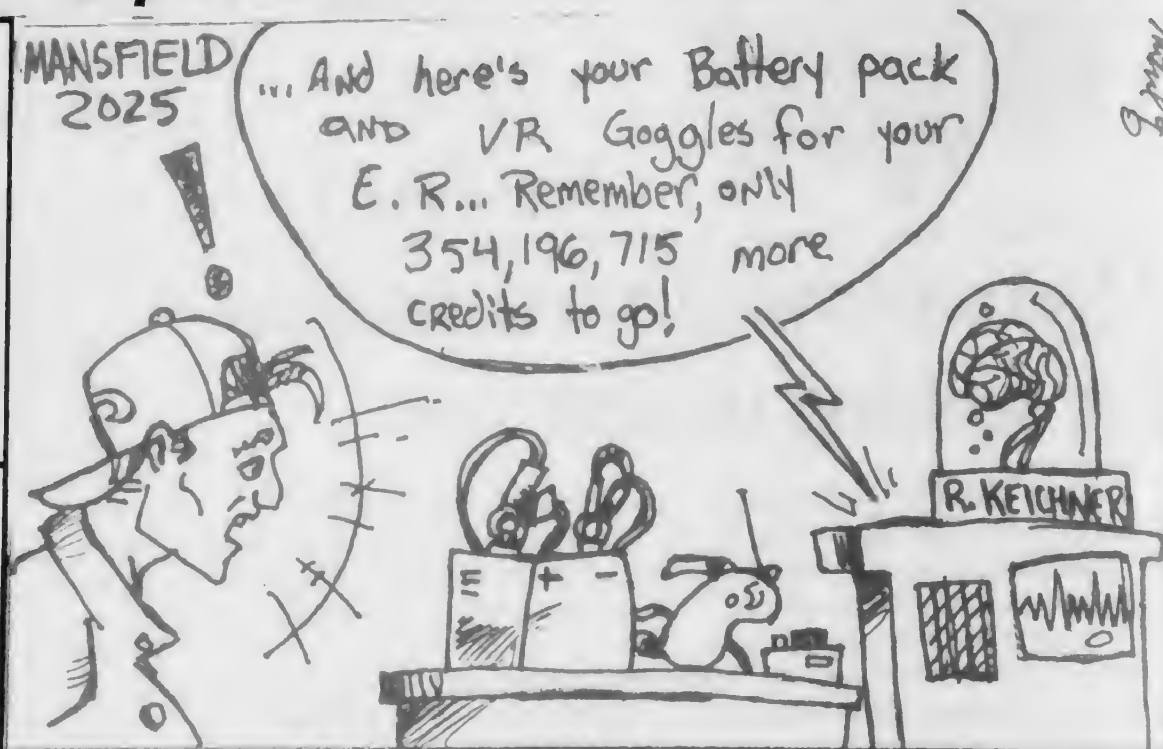 MANSFIELD
2025
...AND here's your Battery pack
AND VR Goggles for your
E.R... Remember, only
354,196,715 more
credits to go!
R. KEICHNER
+ -